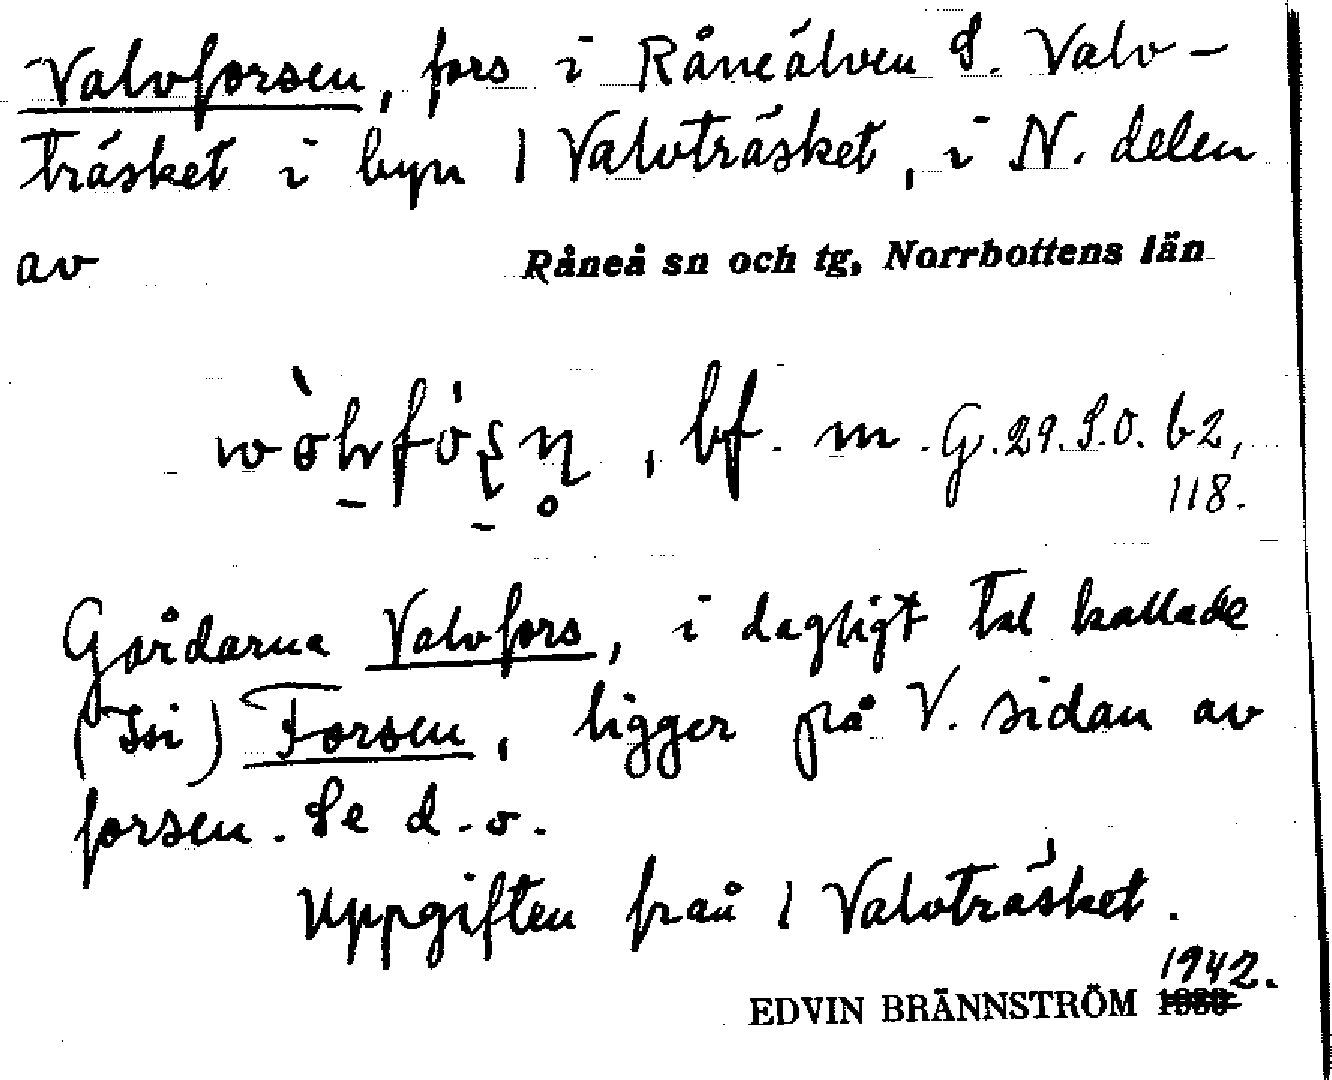 Valvforsen, fors i Råneälven S. Valv-
träsket i byn 1 Valvträsket, i N. delen
av Råneå sn och tg, Norrbottens län
, bf. m. G. 29. S.O. 62,
118.
Gårdarna Valvfors, i dagligt tal kallade
(Isi) Forsen, ligger på V. sidan av
forsen. Se d.o.
Uppgiften från 1 Valvträsket.
1942.
EDVIN BRÄNNSTRÖM